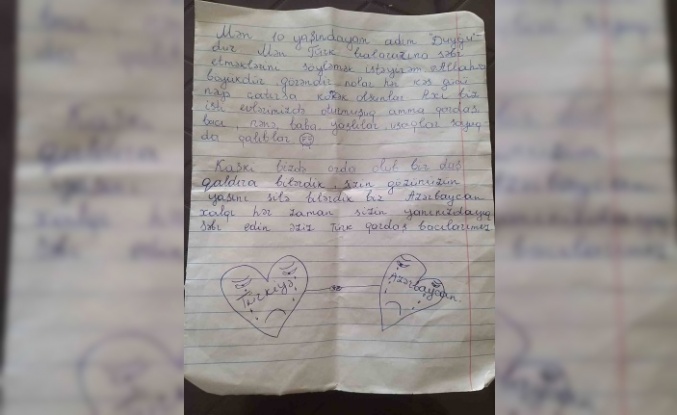 Mən 10 yaşındayam adım "Duyğu"
dur Mən Türk balarızına səbr
etməklərini söyləmək istəyirəm Allah
böyükdür görəndir nolar hər kəs gücü
nəyə çatırsa kömək olsunlar Axı biz
isti evlərimizdə oturmuşuq amma qardaş
bacı, nənə, baba, yaşlılar, uşaqlar soyuq
da qalıblar
Kaşki bizdə orda olub bir daş
qaldıra bilərdik, sizin gözünüzün
yaşını silə bilərdik biz Azərbaycan
xalqı hər zaman sizin yanınızdayıq
Səbr edin əziz Türk qardaş bacılarımız
Türkiyə Azərbaycan